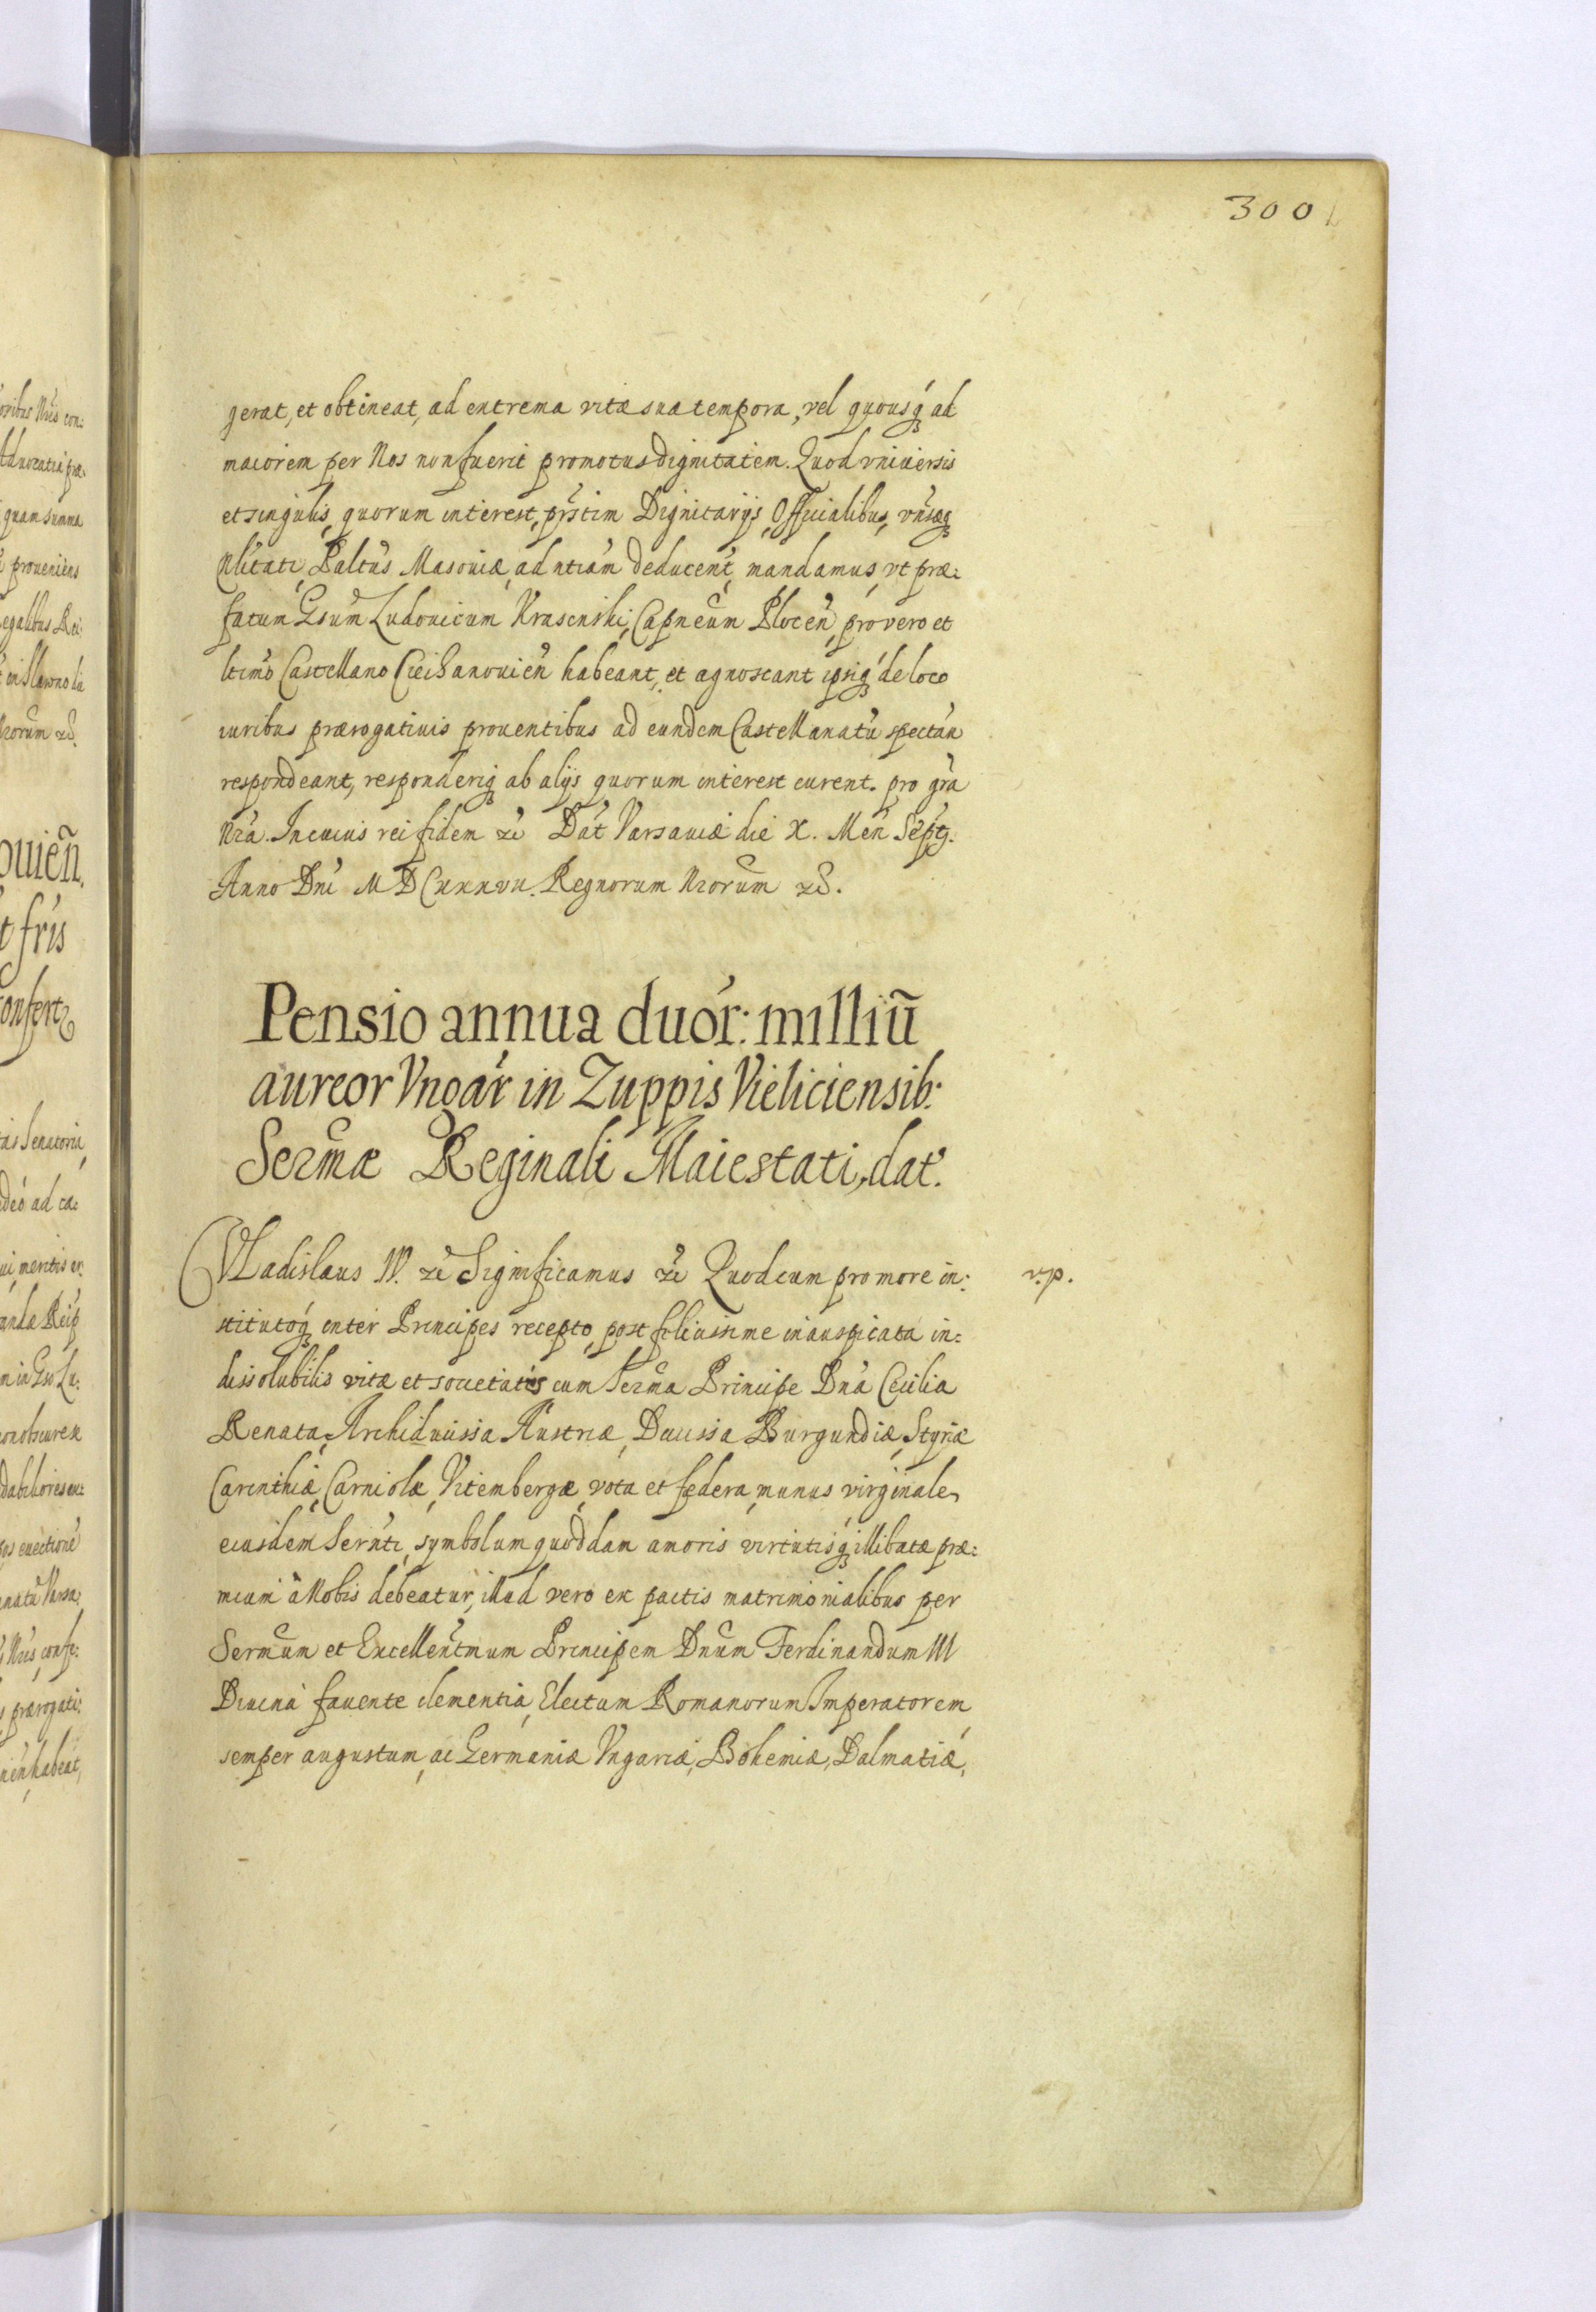 300
gerat, et obtineat, ad extrema vitæ suæ tempora, vel quousq́ ad
maiorem per Nos non fuerit promotus dignitatem. Quod vniuersis
et singulis, quorum interest, prs̃tim Dignitarijs, Officialibus, vñsæq
Nlĩtati, Paltũs Masouiæ, ad ntiãm deducent̃, mandamus, vt præ:
fatum Gsum̃ Ludouicum Krasinski, Capneum̃ Plocen̄, pro vero et
ltimõ Castellano Ciechanouien̄ habeant, et agnoscant ipsiq́ de loco
iuribus prærogatiuis prouentibus ad eundem Castellanatũ spectan̄
respondeant, responderiq ab alijs quorum interest curent. pro grã
Nrã. In cuius rei fidem &c̃ Dat̃ Varsauiæ die X. Men̄ Sept̃.
Anno Dnĩ MDCxxxvii. Regnorum Nrorum̃ &c̃.
Pensio annua duor: milliũ
aureor Vngar̃ in Zuppis Vieliciensib:
Serm̃æ Reginali Maiestati, dat̃.
VLadislaus IV. &c̃ Significamus &c̃ Quod cum pro more in:
v.p.
stitutoq́ inter Principes recepto, post feliciissime inauspicata in:
dissolubilis vitæ et societatis cum Serm̃a Principe Dnã Cecilia
Renata, Archiducissa Austriæ, Ducissa Burgundiæ, Styriæ
Carinthiæ, Carniolæ, Vitembergæ, vota et fędera, munus virginale,
eiusdem Serñti, symbolum quoddam amoris virtutisq́ illibatæ præ:
mium à Nobis debeatur, illud vero ex pactis matrimonialibus per
Sermum̃ et Excellent̃mum Principem Dnum̃ Ferdinandum III
Diuinà fauente clementià, Electum Romanorum Imperatorem
semper augustum, ac Germaniæ Vngariæ, Bohemiæ, Dalmatiæ,